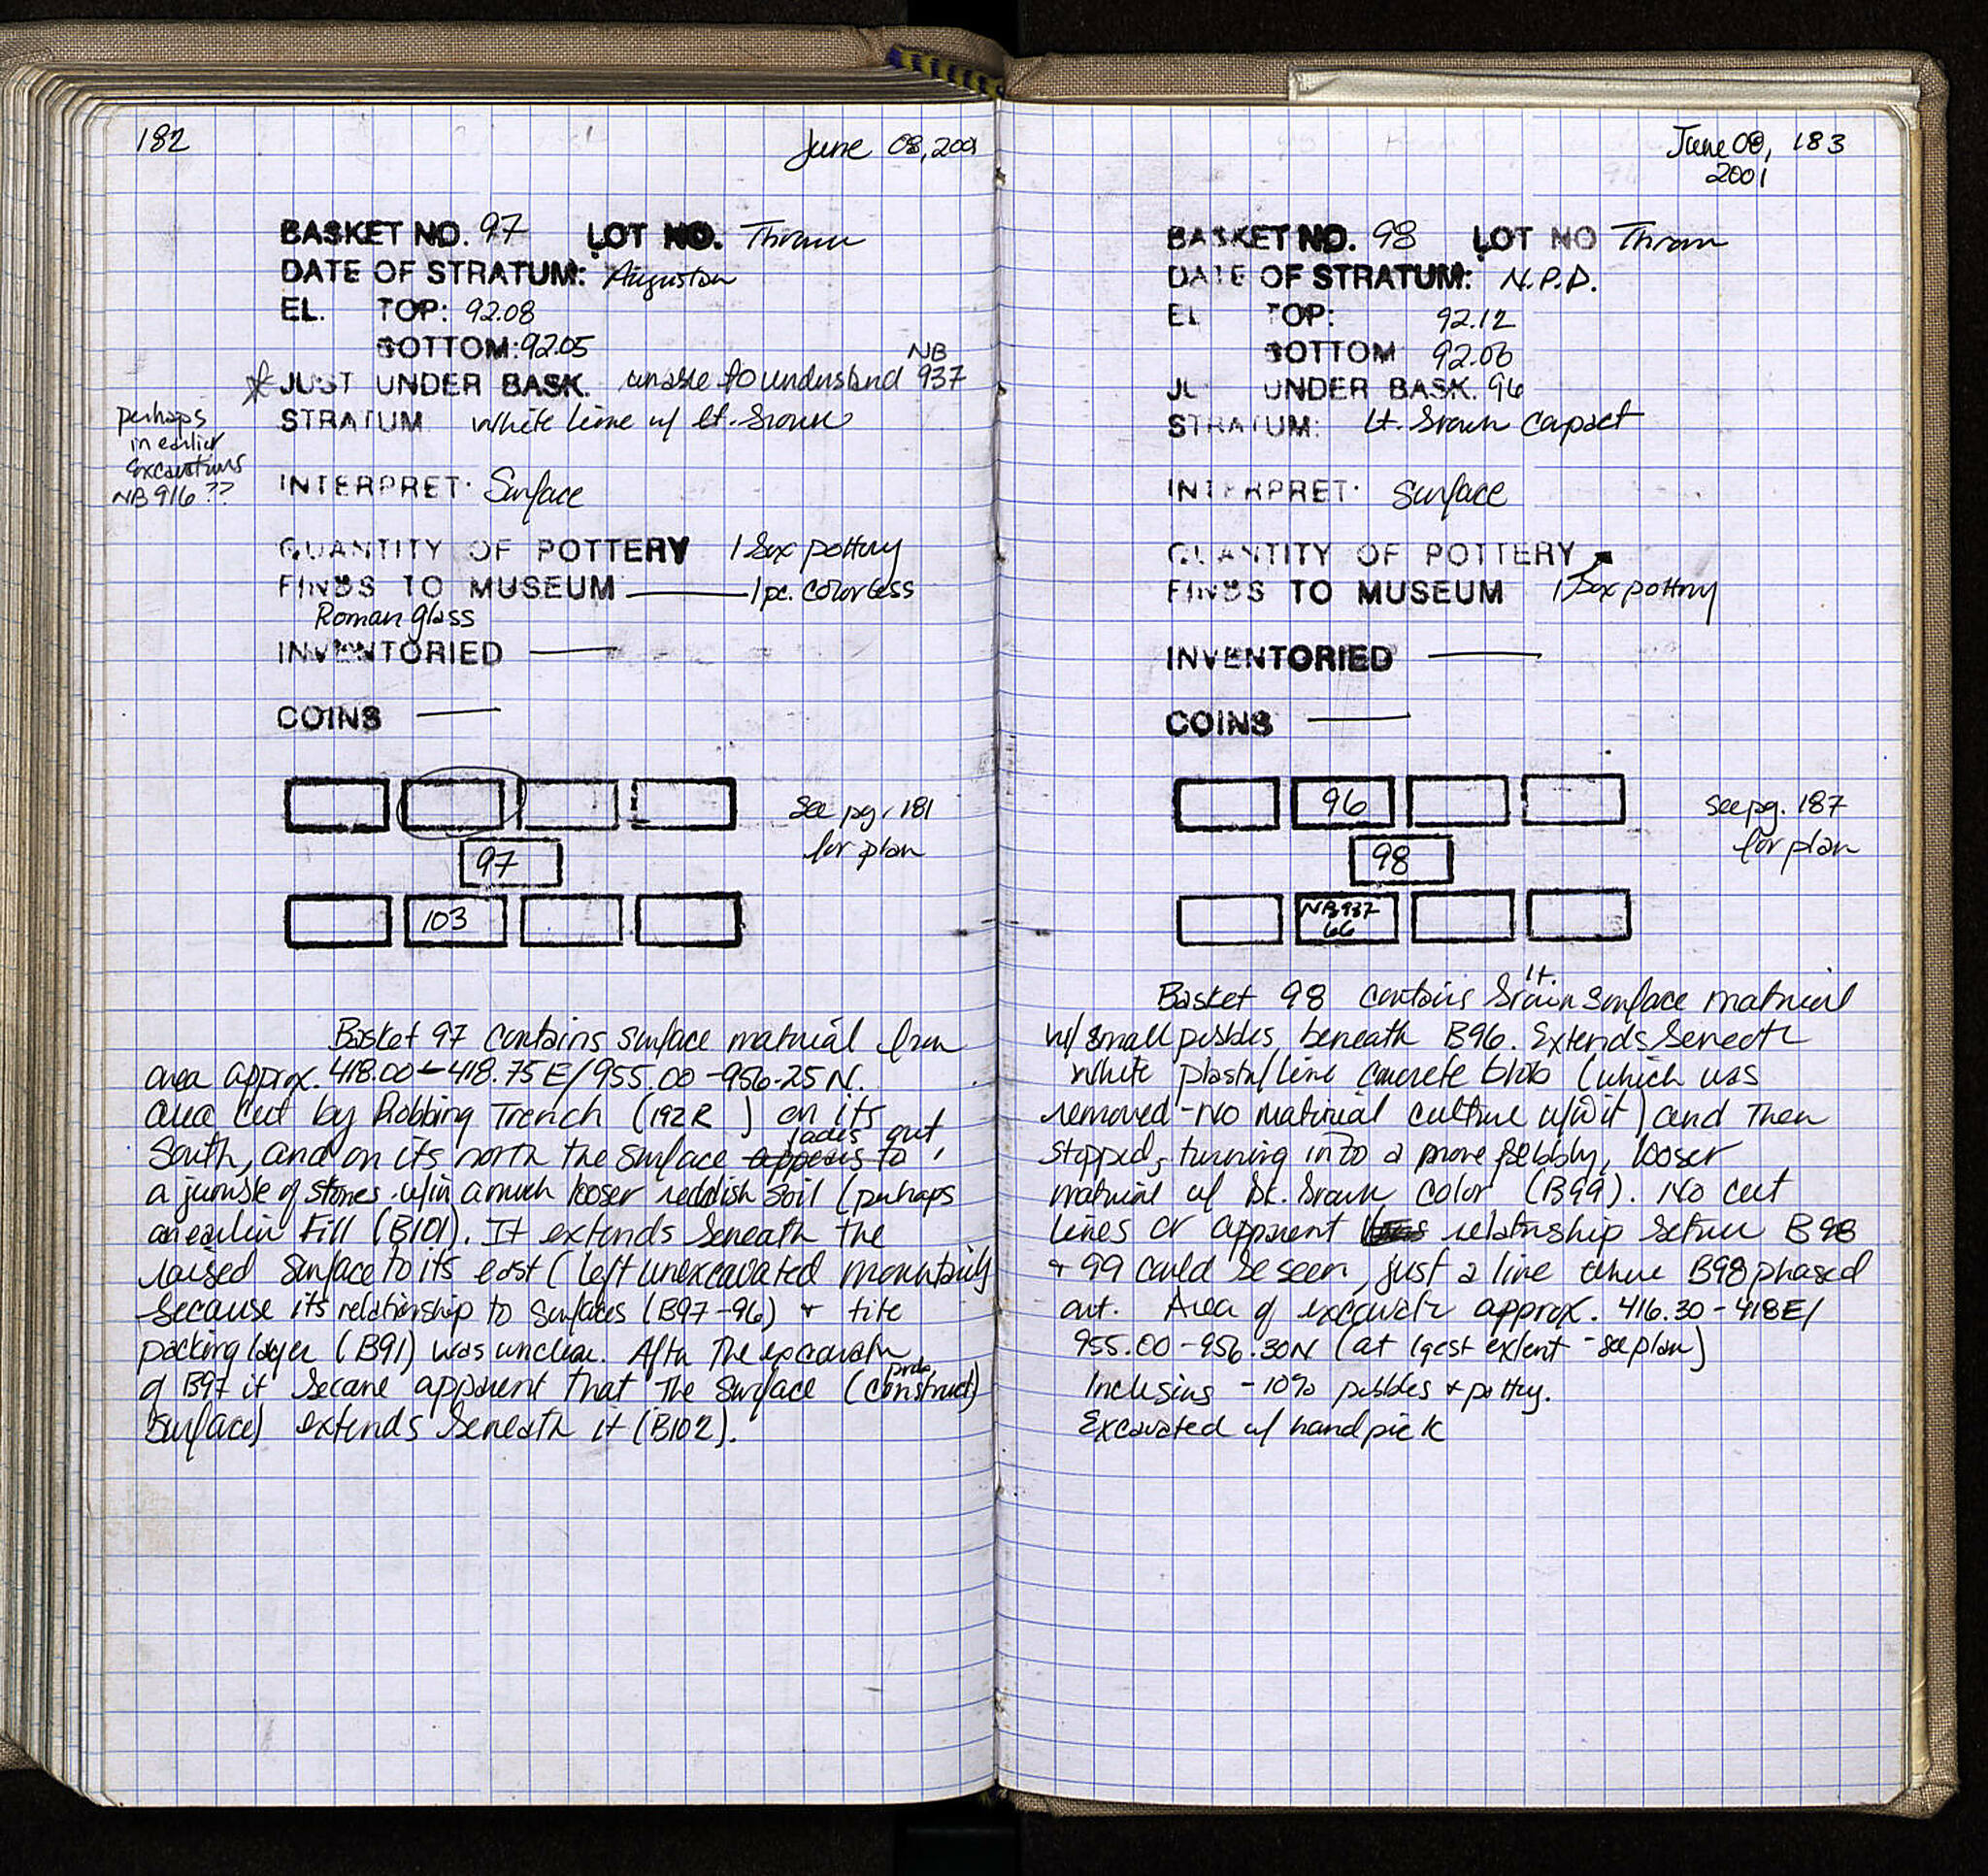 182 June 08, 2001
BASKET NO. 97 LOT NO. Thrown
DATE OF STRATUM: Augustan
EL. TOP: 92.08
BOTTOM: 92.05
NB
* JUST UNDER BASK. unable to understand 937
perhaps
in earlier
excavations
NB 916 ??
STRATUM White lime w/ lt. brown
INTERPRET. Surface
QUANTITY OF POTTERY 1 box pottery
FINDS TO MUSEUM — 1 pc. colorless
Roman glass
INVENTORIED —
COINS —
See pg. 181
for plan
97
103
Basket 97 contains surface material from
area approx. 418.00 - 418.75 E/955.00 - 956.25 N.
area cut by Robbing Trench (192R ) on its
South, and on its north the surface appears to fades out,
a jumble of stones w/in a much looser reddish soil (perhaps
an earlier Fill (B101). It extends beneath the
raised surface to its east (left unexcavated momentarily
because its relationship to surfaces (B97-96) + tile
packing layer (B91) was unclear. After the excavatn
of B97 it became apparent that the surface (prob. construct)
surface) extends beneath it (B102).
June 08, 183
2001
BASKET NO. 98 LOT NO Thrown
DATE OF STRATUM: N.P.D.
EL TOP: 92.12
BOTTOM 92.06
JU UNDER BASK. 96
STRATUM: Lt. brown compact
INTERPRET. Surface
QUANTITY OF POTTERY
FINDS TO MUSEUM 1 box pottery
INVENTORIED —
COINS —
96
98
NB 937
66
see pg. 187
for plan
Basket 98 contains lt. brown surface material
w/ small pebbles, beneath B96. Extends beneath
white plaster/lime concrete blob (which was
removed - no material culture w/in it) and then
stopped, turning into a more pebbly, looser
material w/ Dk. brown color (B99). No cut
lines or apparent relationship betwn B98
+ 99 could be seen, just a line where B98 phased
out. Area of excavatn approx. 416.30 - 418E/
955.00 - 956.30N (at lgest extent - see plan)
Inclusins - 10% pebbles + pottery.
Excavated w/ handpick